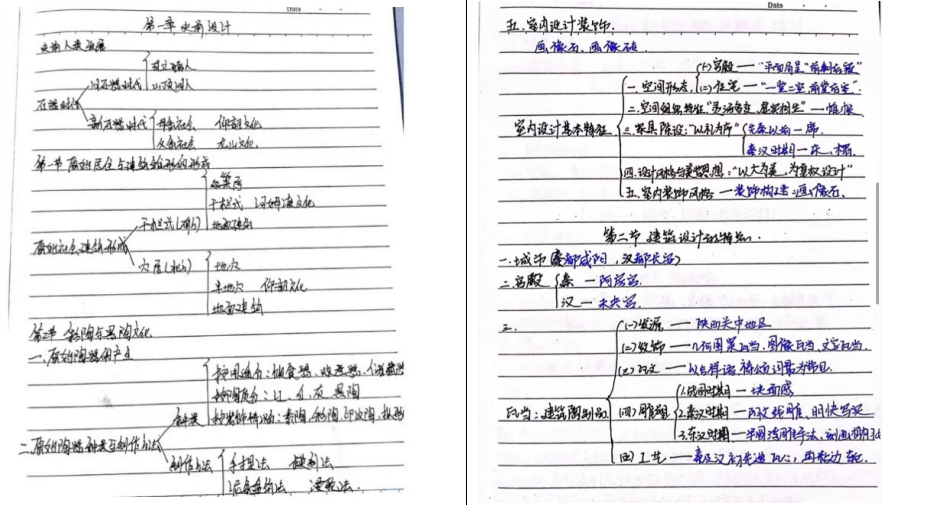 Date
第一章 史前设计
史前人类发展
直立猿人
旧石器时代 山顶洞人
石器时代
新石器时代 母系社会 仰韶文化
父系社会 龙山文化
第一节 原始居住与建筑雏形的形成
巢居
干栏式 河姆渡文化
干栏式(南方) 地面建筑
原始社会建筑形成
穴居(北方) 地穴
半地穴 仰韶文化
地面建筑
第2节 彩陶与黑陶文化
一.原始陶器的产生
按用途分:饮食器、
按陶质分:红、灰、黑陶
种类 按装饰情况:素陶、彩陶、印纹陶、
二.原始陶器种类与制作方法
制作方法 手捏法 模制法
泥条盘筑法、
Date
五.室内设计装饰:
画像石、画像砖.
(一)宫殿 — "平面为呈"前朝后寝"
一.空间形态. (二)住宅 — "一堂二室.前堂后室".
二.空间组织特征:"灵活多变,虚实相生" — 帷帐
室内设计基本特征 三.家具陈设:"以礼为序" 先秦以前—席.
秦汉时期—床、榻.
四.设计风格与美学思想:"以大为美,为皇权设计"
五.室内装饰风格 — 装饰构造:画像石.
第二节 建筑设计及特点.
一.城市(秦都咸阳,汉都长安)
二.宫殿 秦 — 阿房宫.
汉 — 未央宫.
三.
(一)发源 — 陕西关中地区
(二)纹饰 — 几何图案瓦当、图像瓦当、文字瓦当.
(三)瓦文 — 以吉祥语、祷颂词最为常见.
1.战国时期 — 块面感
瓦当:建筑雕刻品 (四)雕塑 2.秦汉时期 — 明快写实
3.东汉时期 —
(四)工艺 — 秦及汉初先造瓦心,再粘边轮.